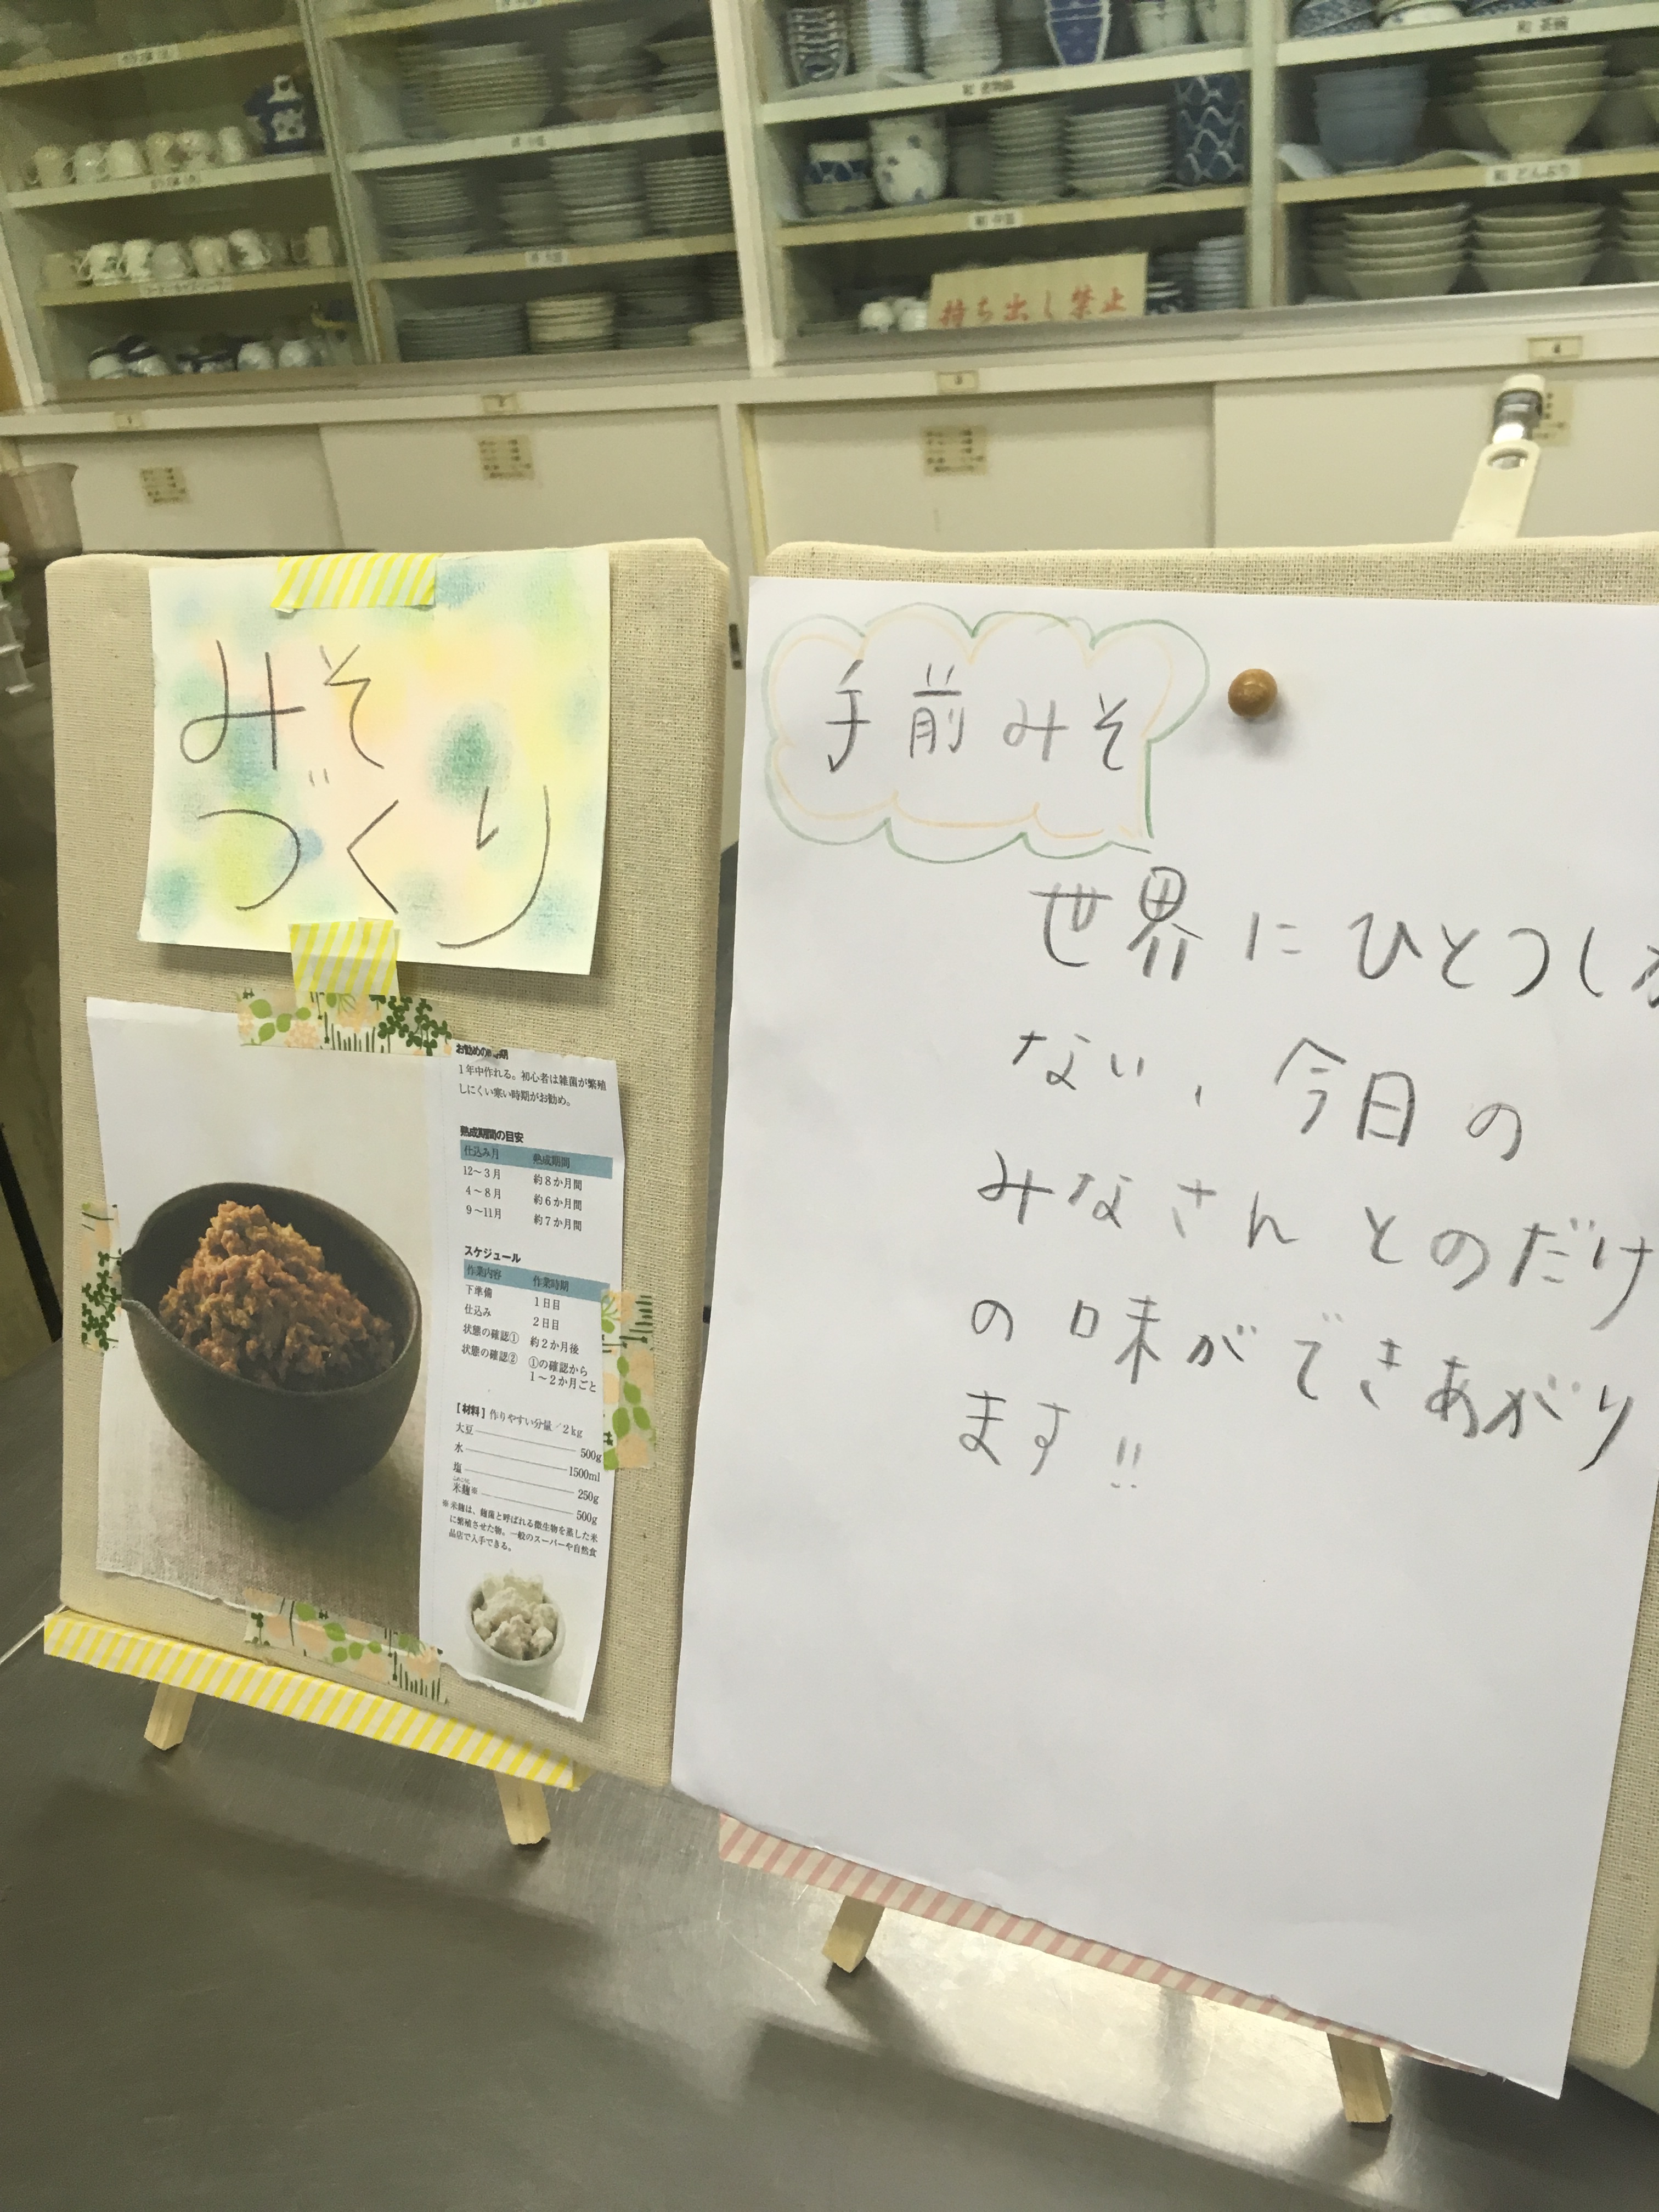 和 茶碗
和 どんぶり
持ち出し禁止
みそ
づくり
お勧めの時期
1年中作れる。初心者は雑菌が繁殖
しにくい寒い時期がお勧め。
熟成期間の目安
仕込み月 熟成期間
12〜3月 約8か月間
4〜8月 約6か月間
9〜11月 約7か月間
スケジュール
作業内容 作業時期
下準備 1日目
仕込み 2日目
状態の確認① 約2か月後
状態の確認② ①の確認から
1〜2か月ごと
【材料】作りやすい分量/2kg
大豆 500g
水 1500ml
塩 250g
米麹※ 500g
※米麹は、麹菌と呼ばれる微生物を蒸した米
に繁殖させた物。一般のスーパーや自然食
品店で入手できる。
手前みそ
世界にひとつしか
ない、今日の
みなさんとのだけ
の味ができあがり
ます!!